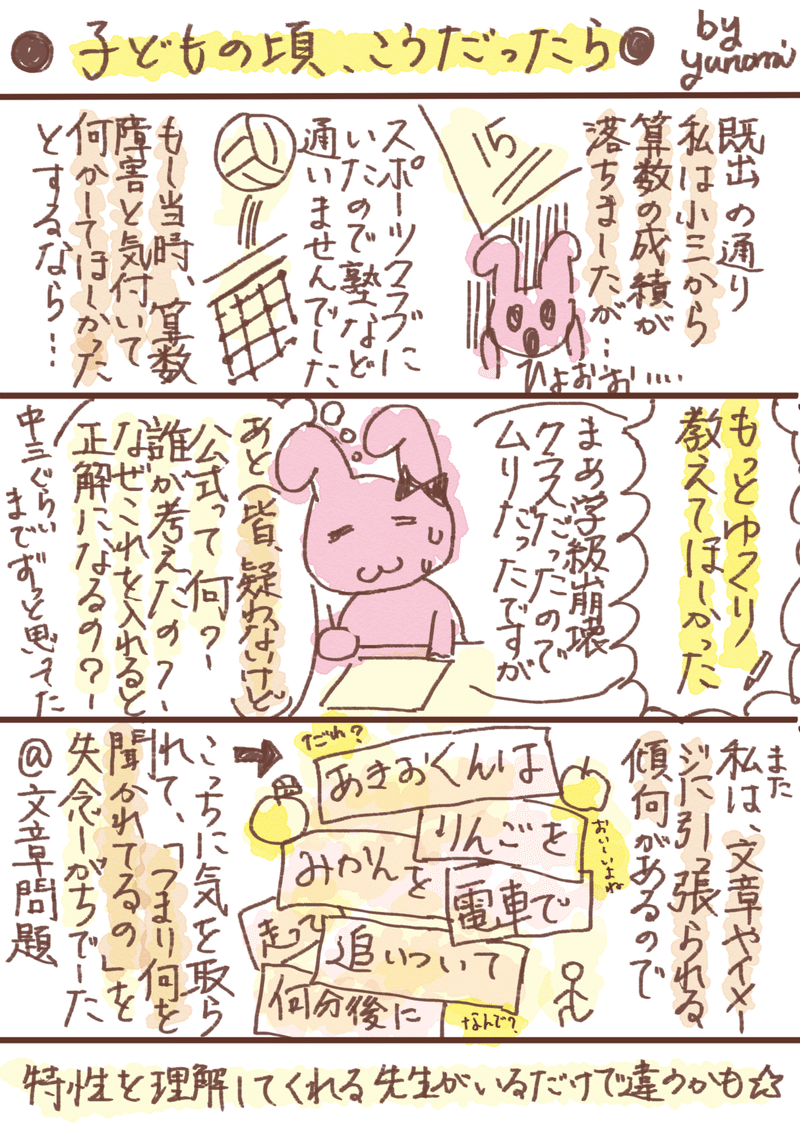 ●子どもの頃、こうだったら●
by
yunomi
既出の通り
私は小三から
算数の成績が
落ちましたが…
15
ひょおぉお……
スポーツクラブに
いたので塾など
通いませんでした
もし当時、算数
障害と気付いて
何かしてほしかった
とするなら…
もっとゆっくり
教えてほしかった
まあ学級崩壊
クラスだったので
ムリだったですが
あと(皆、疑わないけど)
公式って何?
誰が考えたの?
なぜこれを入れると
正解になるの?
中三ぐらい
までずっと思ってた
また
私は、文章やイメー
ジに引っ張られる
傾向があるので
だれ?
あきおくんは
りんごを
おいしいよね
みかんを
電車で
起って
追いついて
何分後に
なんで?
こっちに気を取ら
れて、「つまり何を
聞かれてるの」を
失念しがちでした
@文章問題
特性を理解してくれる先生がいるだけで違うかも☆